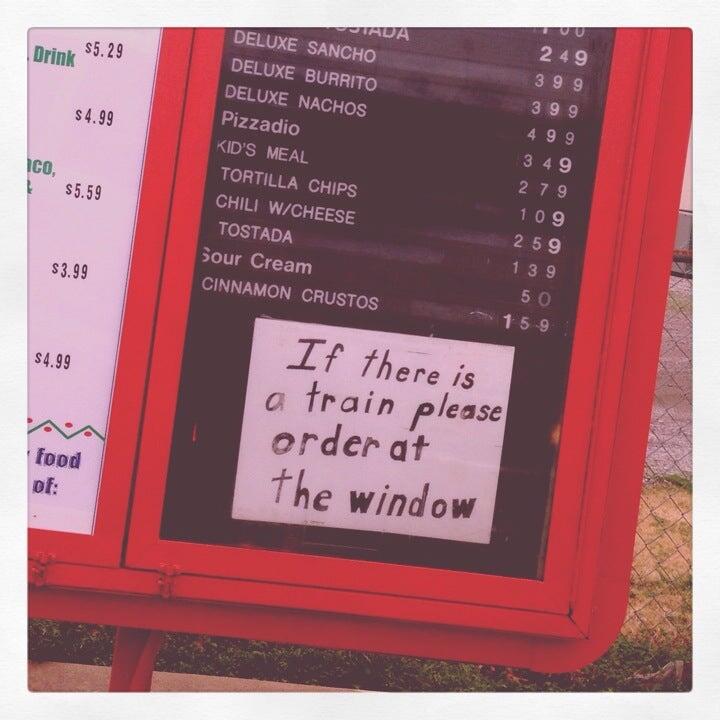 Drink $5.29
$4.99
aco,
& $5.59
$3.99
$4.99
food
of:
1 00
TOSTADA 249
DELUXE SANCHO 399
DELUXE BURRITO 399
DELUXE NACHOS 499
Pizzadio 349
KID'S MEAL 279
TORTILLA CHIPS 109
CHILI W/CHEESE 259
TOSTADA 139
Sour Cream 50
CINNAMON CRUSTOS 159
If there is
a train please
order at
the window